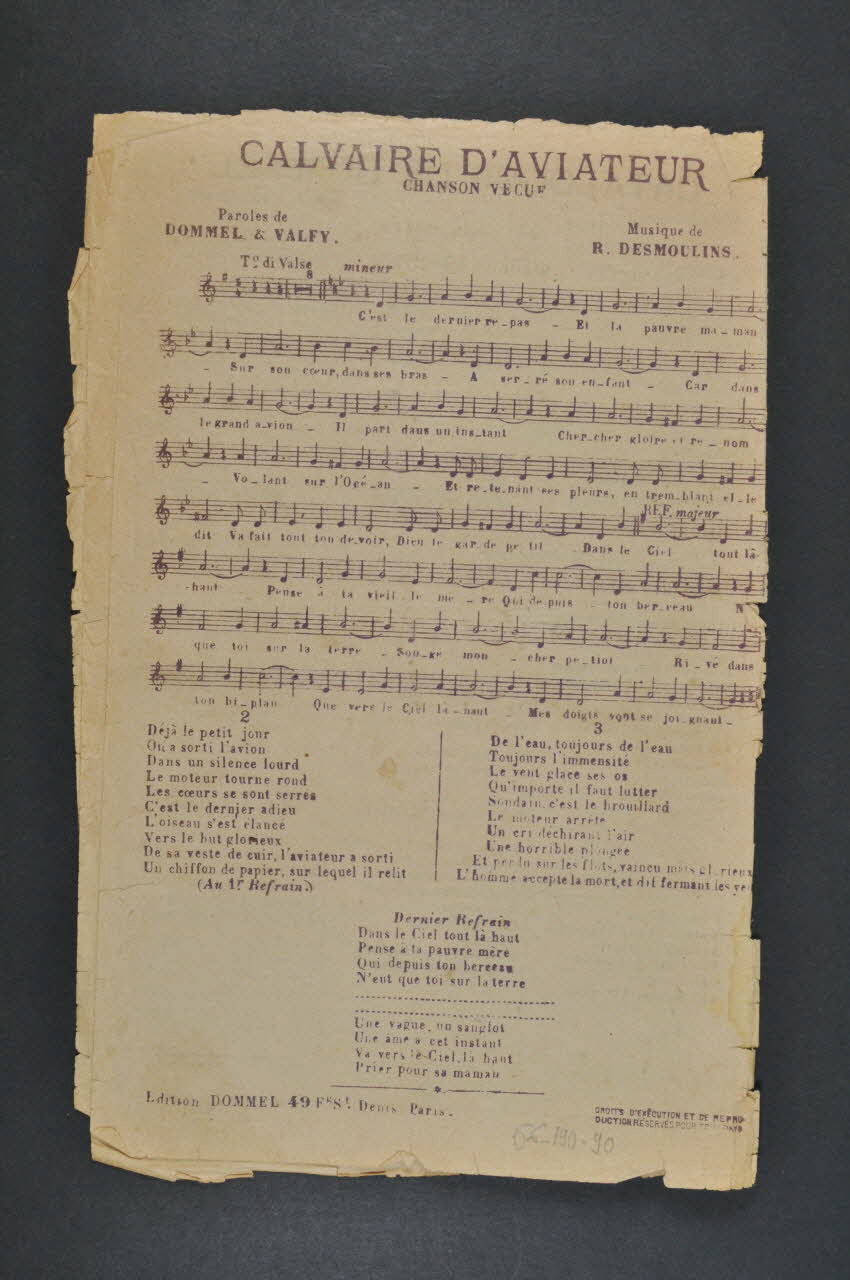 CALVAIRE D'AVIATEUR
CHANSON VECUE
Paroles de
DOMMEL & VALFY.
Musique de
R. DESMOULINS.
Tº di Valse
8
mineur
C'est le dernier re_pas _ Et la pauvre ma_man
_ Sur son cœur, dans ses bras _ A ser_ré son en_fant _ Car dans
le grand a_vion _ Il part dans un ins_tant Cher_cher gloire et re_nom
_ Vo_lant sur l'Océ_an _ Et re_te_nant ses pleurs, en trem_blant el_le
REF. majeur
dit Va fait tout ton de_voir, Dieu te gar_de pe tit Dans le Ciel tout là-
-haut Pense à ta vieil_le mè_re Qui de_puis _ ton ber_ceau N
que toi sur la terre _ Son_ge mon _ cher pe_tiot _ Ri_vé dans
ton bi_plan Que vers le Ciel là_haut _ Mes doigts vont se joi_gnant _
2
Déjà le petit jour
On a sorti l'avion
Dans un silence lourd
Le moteur tourne rond
Les cœurs se sont serrés
C'est le dernier adieu
L'oiseau s'est élancé
Vers le but glorieux
De sa veste de cuir, l'aviateur a sorti
Un chiffon de papier, sur lequel il relit
(Au 1er Refrain.)
3
De l'eau, toujours de l'eau
Toujours l'immensité
Le vent glace ses os
Qu'importe il faut lutter
Soudain, c'est le brouillard
Le moteur arrête
Un cri déchirant l'air
Une horrible plongée
Et perdu sur les flots, vaincu mais glorieux
L'homme accepte la mort, et dit fermant les ye
Dernier Refrain
Dans le Ciel tout là haut
Pense à ta pauvre mère
Qui depuis ton berceau
N'eut que toi sur la terre
Une vague, un sanglot
Une âme a cet instant
Va vers le Ciel, là haut
Prier pour sa maman
Edition DOMMEL 49 Fg St Denis Paris.
DROITS D'EXÉCUTION ET DE REPRO
DUCTION RÉSERVÉS POUR PAYS
56-190-90